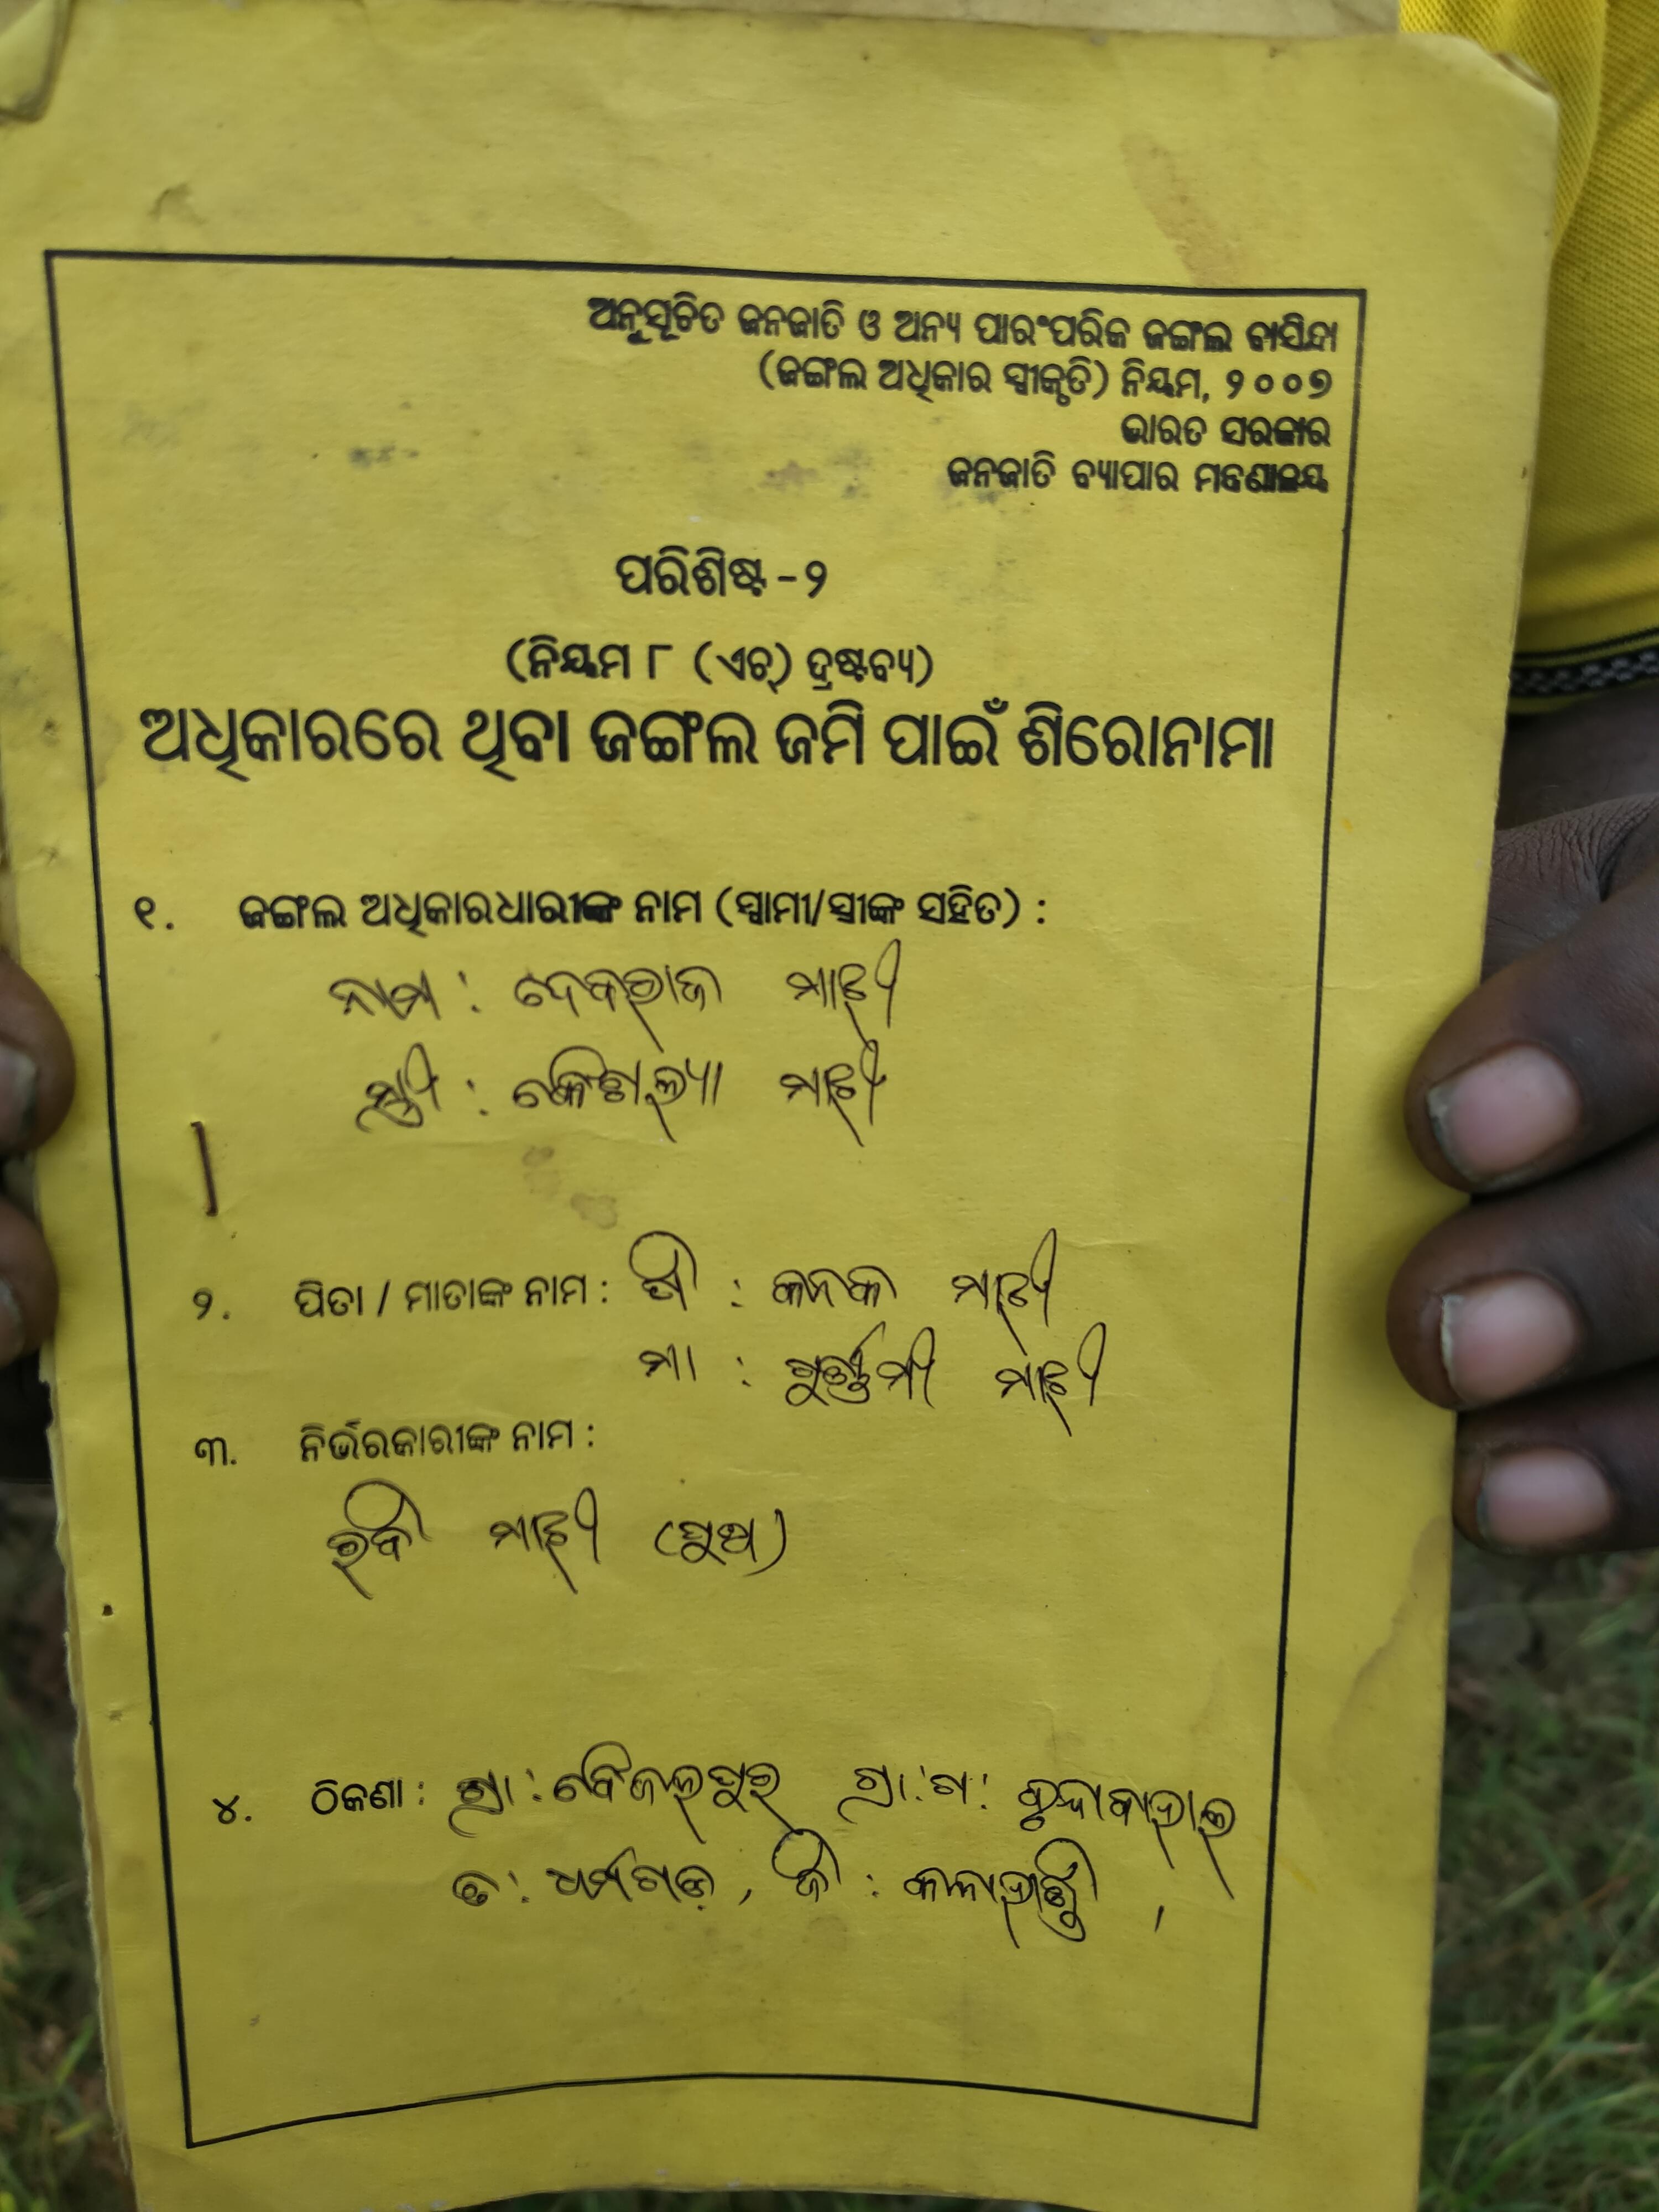 ଅନୁସୂଚିତ ଜନଜାତି ଓ ଅନ୍ୟ ପାରଂପରିକ ଜଙ୍ଗଲ ବାସିନ୍ଦା
(ଜଙ୍ଗଲ ଅଧିକାର ସ୍ୱୀକୃତି) ନିୟମ, ୨୦୦୭
ଭାରତ ସରକାର
ଜନଜାତି ବ୍ୟାପାର ମନ୍ତ୍ରଣାଳୟ
ପରିଶିଷ୍ଟ - ୨
(ନିୟମ ୮ (ଏଚ୍) ଦ୍ରଷ୍ଟବ୍ୟ)
ଅଧିକାରରେ ଥିବା ଜଙ୍ଗଲ ଜମି ପାଇଁ ଶିରୋନାମା
୧. ଜଙ୍ଗଲ ଅଧିକାରଧାରୀଙ୍କ ନାମ (ସ୍ୱାମୀ/ସ୍ତ୍ରୀଙ୍କ ସହିତ) :
ନାମ : ଦେବରାଜ ମାଝୀ
ସ୍ତ୍ରୀ : ମାଝୀ
୨. ପିତା / ମାତାଙ୍କ ନାମ : ପି : କନକ ମାଝୀ
ମା : ମାଝୀ
୩. ନିର୍ଭରକାରୀଙ୍କ ନାମ :
ରବି ମାଝୀ (ପୁଅ)
୪. ଠିକଣା : ଗ୍ରା : ବିଜଲପୁର ଗ୍ରା : ଗ :
ତ : ଧର୍ମଗଡ଼ , ଜି : କଳାହାଣ୍ଡି ,